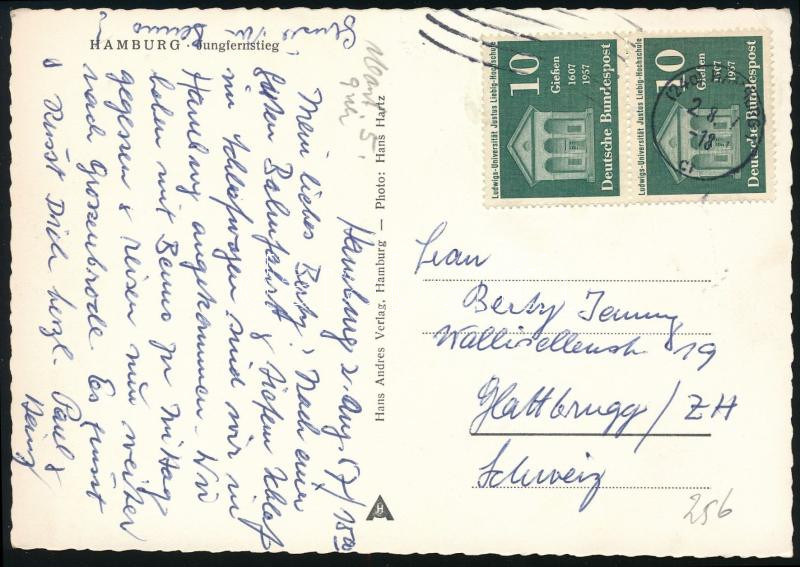 HAMBURG · Jungfernstieg
Hamburg 2. Aug. 57/1500
Mein liebes Berty! Nach einer
guten Bahnfahrt & tiefem Schlaf
im Schlafwagen sind wir in
Hamburg angekommen. Wir
haben mit Benno zu Mittag
gegessen & reisen nun weiter
nach Grossenbrode. Es grüsst
& küsst Dich herzl. Paul &
Heinz
Hans Andres Verlag, Hamburg — Photo: Hans Hartz
10
Gießen
1607
1957
Deutsche Bundespost
Ludwigs-Universität Justus Liebig-Hochschule
10
Gießen
1607
1957
Deutsche Bundespost
Ludwigs-Universität Justus Liebig-Hochschule
Frau
Berty Jenny
Wallisellenstr. 19
Glattbrugg/ZH
Schweiz
256